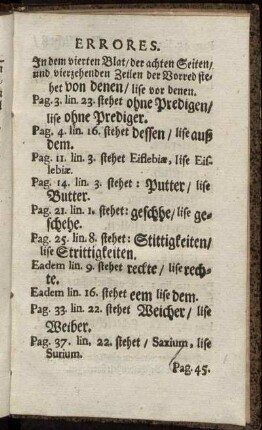 ERRORES.
In dem vierten Blat/ der achten Seiten/
und vierzehenden Zeilen der Vorred ste-
het von denen/ lise vor denen.
Pag. 3. lin. 23. stehet ohne Predigen/
lise ohne Prediger.
Pag. 4. lin. 16. stehet dessen/ lise auß
dem.
Pag. 11. lin. 3. stehet Eißlebiæ, lise Eis-
lebiæ.
Pag. 14. lin. 3. stehet: Putter/ lise
Butter.
Pag. 21. lin. 1. stehet: geschhe/ lise ge-
schehe.
Pag. 25. lin. 8. stehet: Stittigkeiten/
lise Strittigkeiten.
Eadem lin. 9. stehet reckte/ lise rech-
te.
Eadem lin. 16. stehet eem lise dem.
Pag. 33. lin. 22. stehet Weicher/ lise
Weiber.
Pag. 37. lin. 22. stehet/ Saxium, lise
Surium.
Pag. 45.